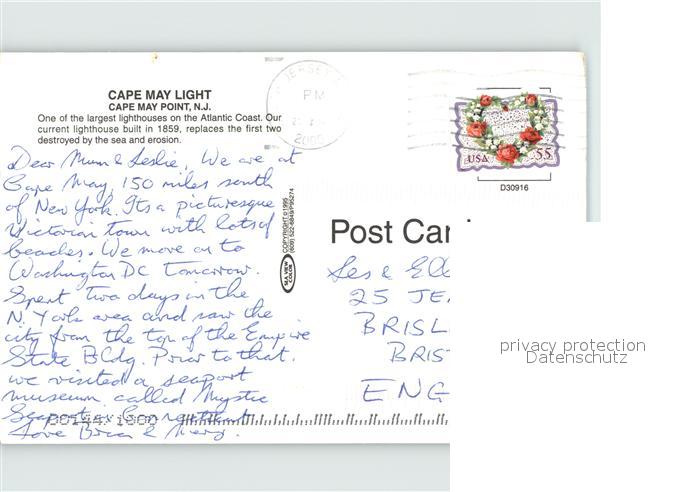 CAPE MAY LIGHT
CAPE MAY POINT, N.J.
One of the largest lighthouses on the Atlantic Coast. Our
current lighthouse built in 1859, replaces the first two
destroyed by the sea and erosion.
Dear Mum & Leslie, We are at
Cape May, 150 miles south
of New York. Its a picturesque
Victorian town with lots of
beaches. We move on to
Washington DC tomorrow.
Spent two days in the
N. York area and saw the
city from the top of the Empire
State Bldg. Prior to that,
we visited a seaport
museum called Mystic
Seaport
Love Brian &
JERSEY
PM
2000
COPYRIGHT © 1995
SEA VIEW
COLOR
USA 55
D30916
Post Car
Les & Ell
25 JE
BRISL
BRIST
ENG
privacy protection
Datenschutz